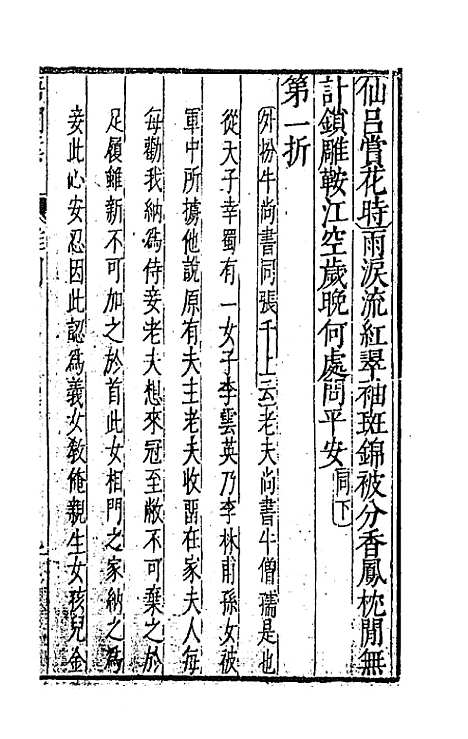 仙呂賞花時雨淚流紅翠袖斑錦被分香鳳枕閒無
計鎖雕鞍江空歲晚何處問平安同下
第一折
外扮牛尚書同張千上云老夫尚書牛僧孺是也
從天子幸蜀有一女子李雲英乃李林甫孫女被
軍中所擄他說原有夫主老夫收畱在家夫人每
每勸我納爲侍妾老夫想來冠至敝不可棄之於
足履雖新不可加之於首此女相門之家納之爲
妾此心安忍因此認爲義女敎俺親生女孩兒金